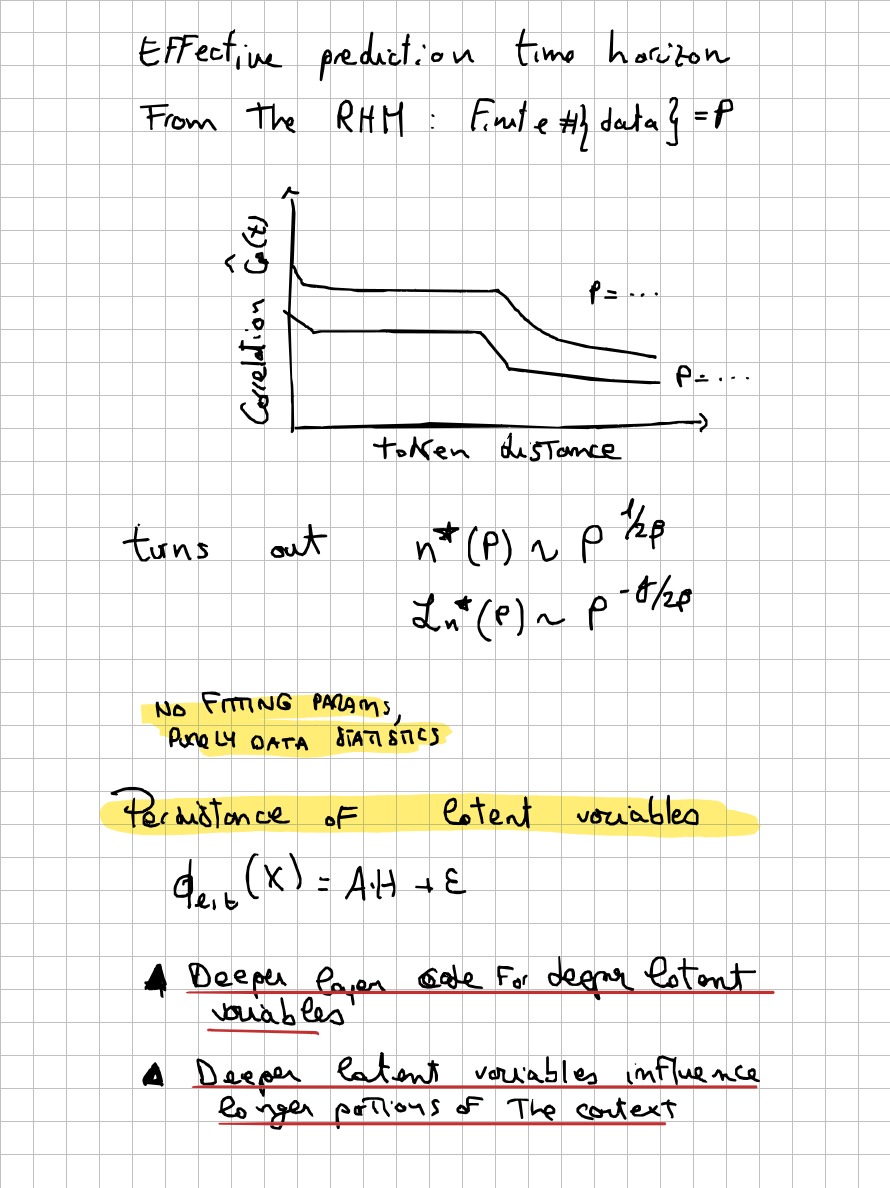 Effective prediction time horizon
From the RHM : Finite #{data} = P
Correlation Ĉp(t)
P = ...
P = ...
token distance
turns out n*(P) ~ P^1/2β
ℒn*(P) ~ P^-γ/2β
NO FITTING PARAMS,
PURELY DATA STATISTICS
Persistance of latent variables
ϕe,t (X) = A·H + ε
Deeper layer code for deeper latent
variables
Deeper latent variables influence
longer portions of the context